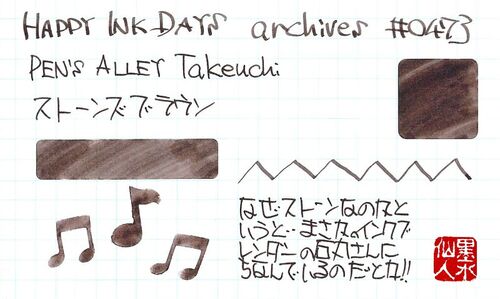 HAPPY INK DAYS archives #0473
PEN'S ALLEY Takeuchi
ストーンズブラウン
なぜストーンなのかと
いうと…まさかのインクブ
レンダーの石丸さんに
ちなんでいるのだとか!!
墨水
仙人